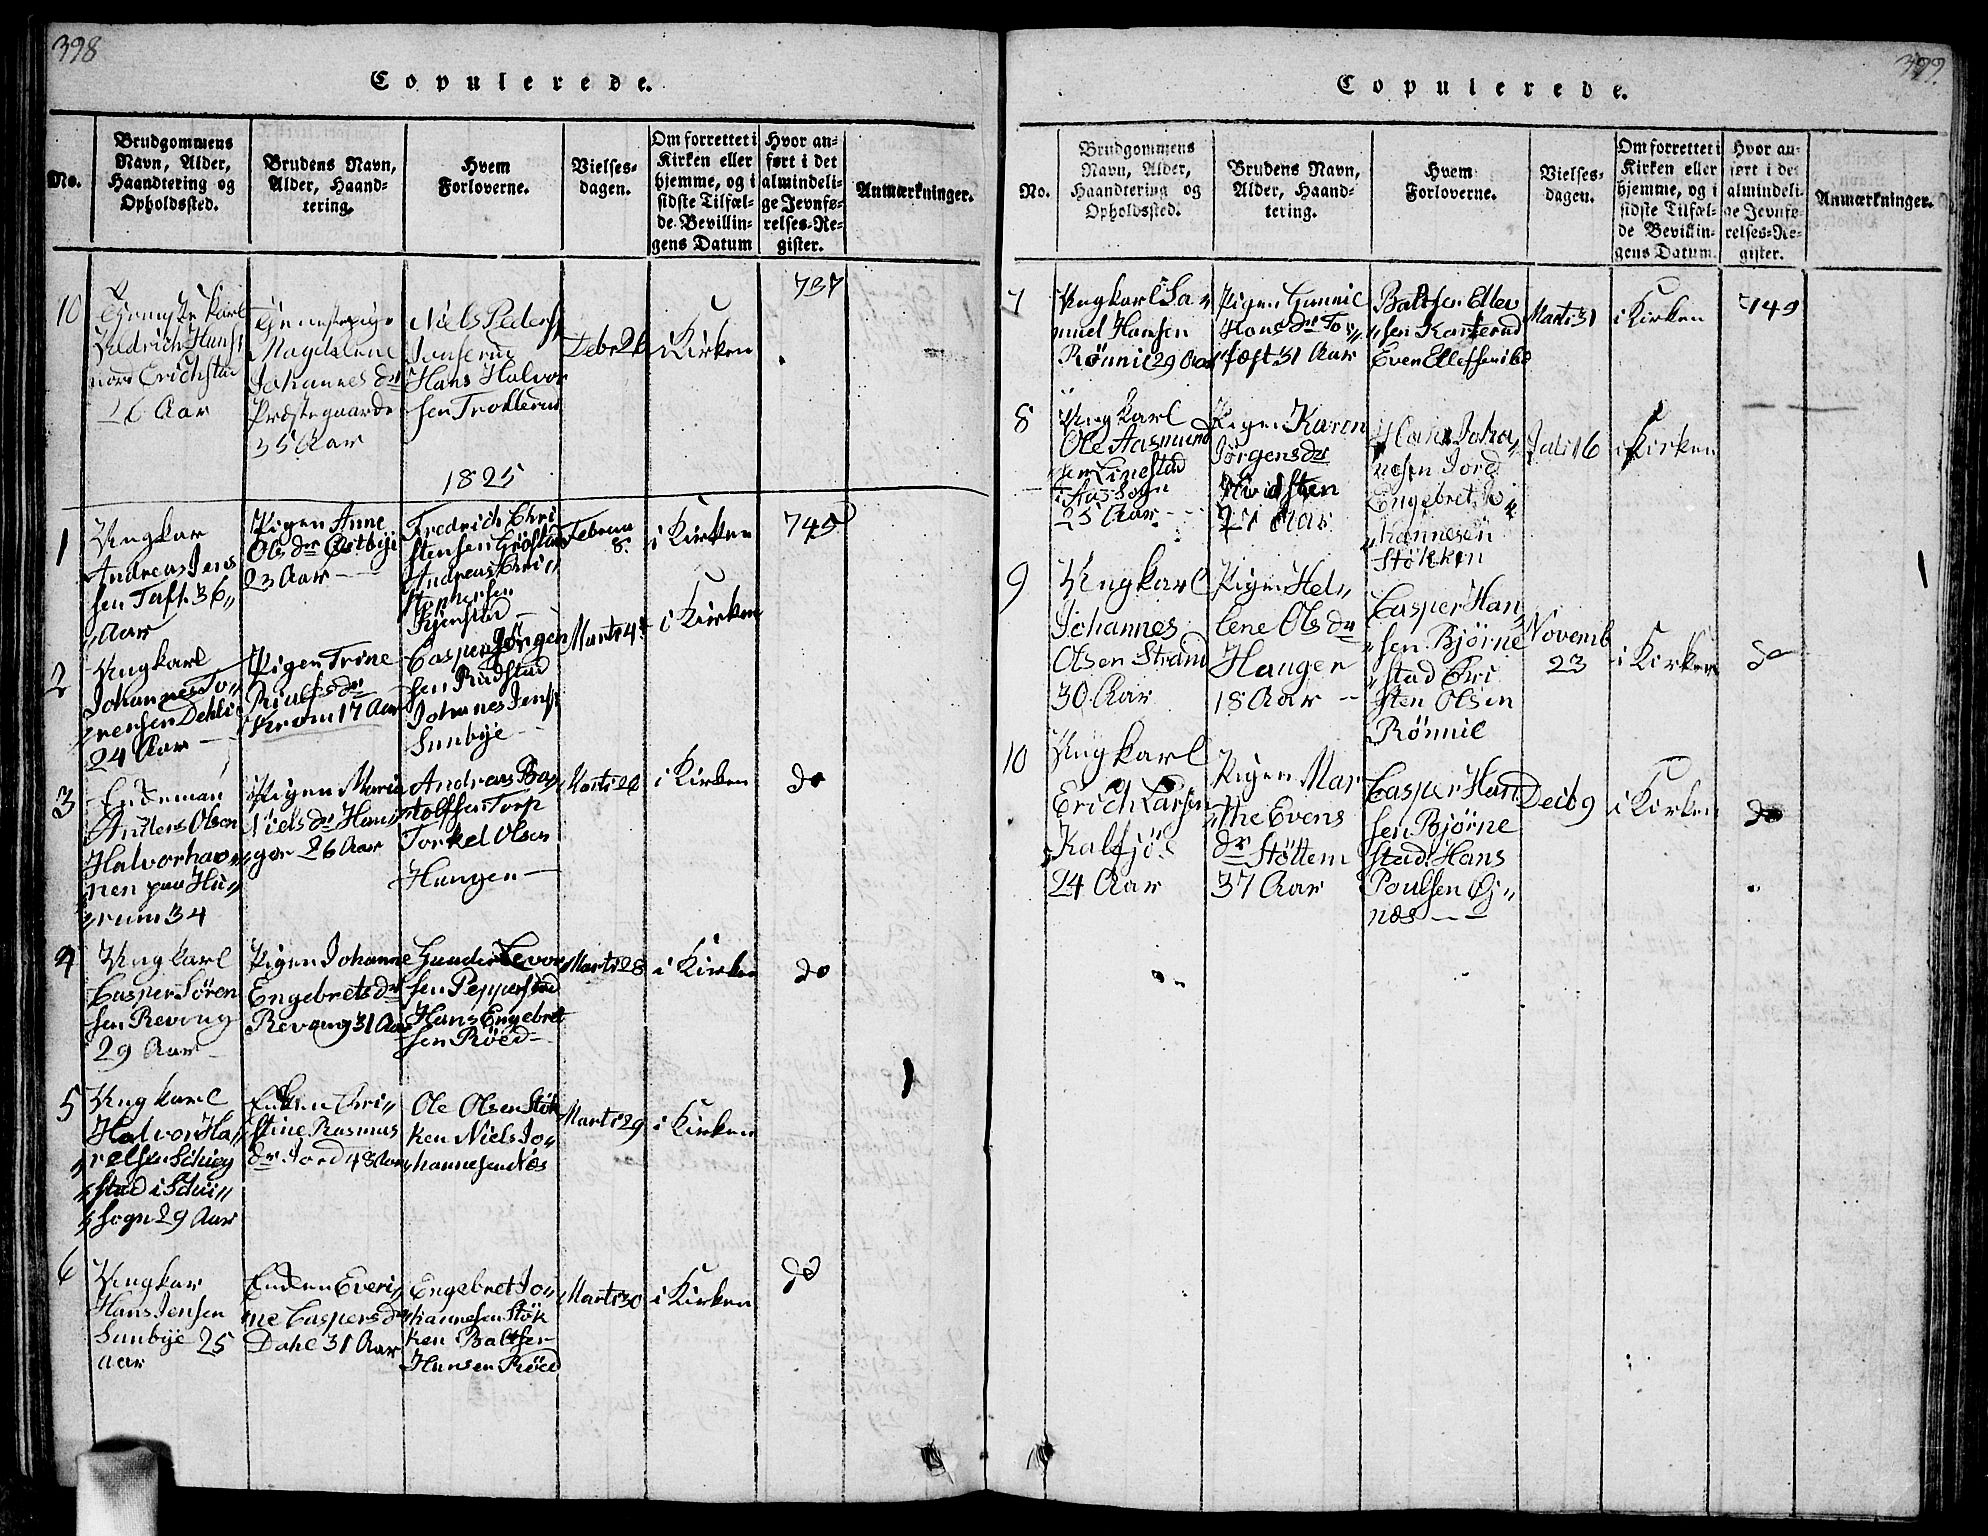 398
Copulerede.
No.
Brudgommens
Navn, Alder,
Haandtering og
Opholdssted.
Brudens Navn,
Alder, Haand-
tering.
Hvem
Forloverne.
Vielses-
dagen.
Om forrettet i
Kirken eller
hjemme, og i
sidste Tilfæl-
de Bevillin-
gens Datum
Hvor an-
ført i det
almindeli-
ge Jevnfø-
relses-Re-
gister.
Anmærkninger.
10
26 Aar
Magdalene
Johannes dr
Præstegaards
35 Aar
Niels Peders
Hans Halvor
sen
Debr 26
i Kirken
737
1825
1
Ungkar
Andreas Jens
sen Taft. 36„
„Aar
Pigen Anne
Ols dr Østbye
23 Aar
Fredrich Chri
stensen
Andreas Chri„
stophersen
Februar
8.
i Kirken
745
2
Ungkarl
Johannes To„
„rersen Dehli
24 Aar
Pigen Trine
Krom 17 Aar
Casper Jörgen
sen Rudstad
Johannes Jens
Sunbye
Marti 4
i Kirken
3
Enkeman
Anders Olsen
Halvorhav„
nen paa Hu„
„rum 34
Pigen Maria
Niels dr Hau„
ger 26 Aar
Andreas Bas„
Torp
Torkel Olsen
Haugen
Marti 26
i Kirken
do
4
Ungkarl
Casper Sören
sen Revoug
29 Aar
Pigen Johanne
Engebrets dr
Revoug 31 Aar
Gunder Tevor
sen Pepperstad
Hans Engebret
sen Röed
Marti 28
i Kirken
do
5
Ungkarl
Halvor Ha„
stad i
„Sogn 29 Aar
Enken Chri„
stine Rasmus
dr Jord 43 Aar
Ole Olsen Stök
ken Niels Jo„
„hannesen Næs
Marti 29
i Kirken
6
Ungkar
Hans Jensen
Sunbye 25
Aar
Enken Everi„
„ne Caspers dr
Dahl 31 Aar
Engebret Jo„
„hannesen Stök
ken Baltser
Hansen Röed
Marti 30
i Kirken
do
399.
Copulerede.
No.
Brudgommens
Navn, Alder,
Haandtering og
Opholdssted.
Brudens Navn,
Alder, Haand-
tering.
Hvem
Forloverne.
Vielses-
dagen.
Om forrettet i
Kirken eller
hjemme, og i
sidste Tilfæl-
de Bevillin-
gens Datum.
Hvor an-
ført i det
almindeli-
ge Jevnfø-
relses-Re-
gister.
Anmærkninger.
7
Ungkarl Sa„
muel Hansen
Rönnie 29 Aar
Pigen Gunnil
Hans dr To„
„fæst 31 Aar
Baltser Ellev
„sen Kaxerud
Even Ellefsen ibd
Marti 31
i Kirken
749
8
Ungkarl
Ole Aasmund
sen Linestad
i Aas Sogn
25 Aar
Pigen Karen
Jörgens dr
Hvidsten
27 Aar
Hans Joha„
nesen Jord
Engebret Jo„
„hannesen
Stökken
Juli 16
i Kirken
9
Ungkarl
Johannes
Olsen Strand
30 Aar
Pigen Hel„
lene Ols dr
Hauger
18 Aar
Casper Han„
„sen Bjørne
„stad Chri
sten Olsen
Rönnie
Novemb
23
i Kirken
do
10
Ungkarl
Erich Larsen
Kalfjös
24 Aar
Pigen Mar
„the Evens
dr Støttem
37 Aar
Casper Han
sen Bjørne
stad. Hans
Poulsen Øj„
næs
Decb 9
i Kirken
do